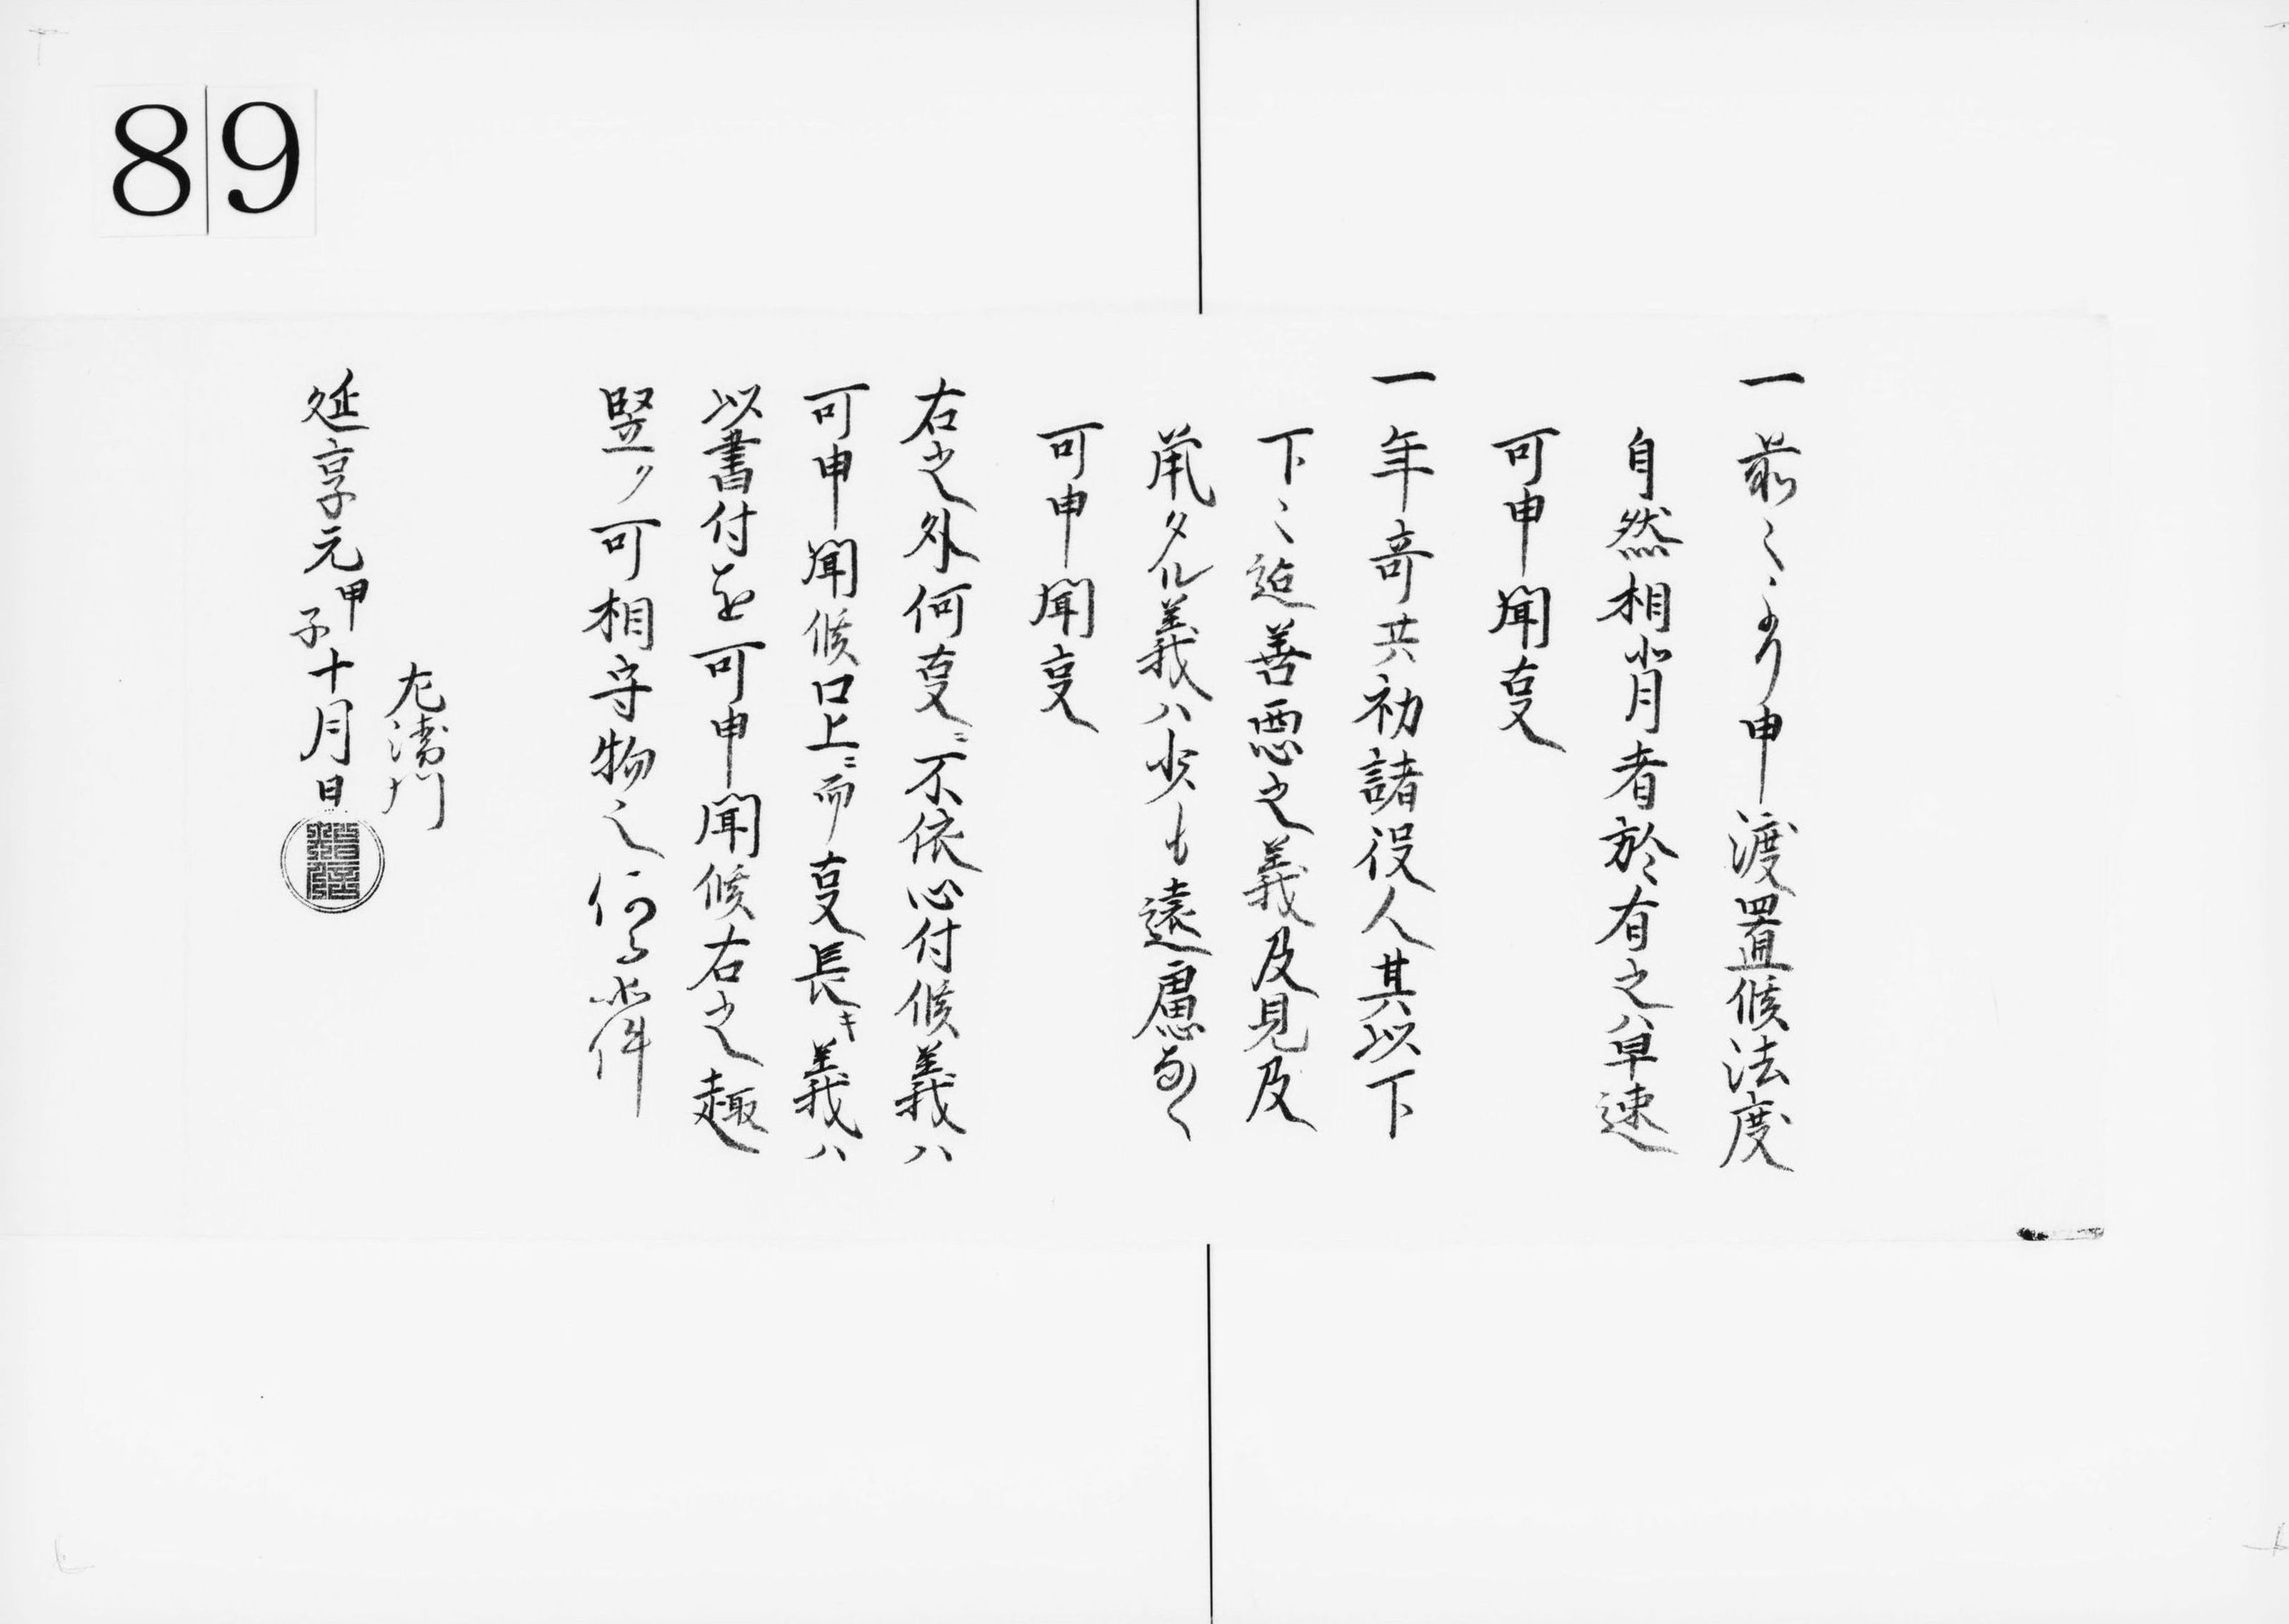 89
一前々より申渡置候法度
自然相背者於有之ハ早速
可申聞事
一年寄共初諸役人其以下
下々迄善悪之義及見及
聞タル義ハ少も遠慮なく
可申聞事
右之外何事ニ不依心付候義ハ
可申聞候口上ニ而事長キ義ハ
以書付を可申聞候右之趣
堅ク可相守物之仍而如件
左衛門
延享元甲子十月日